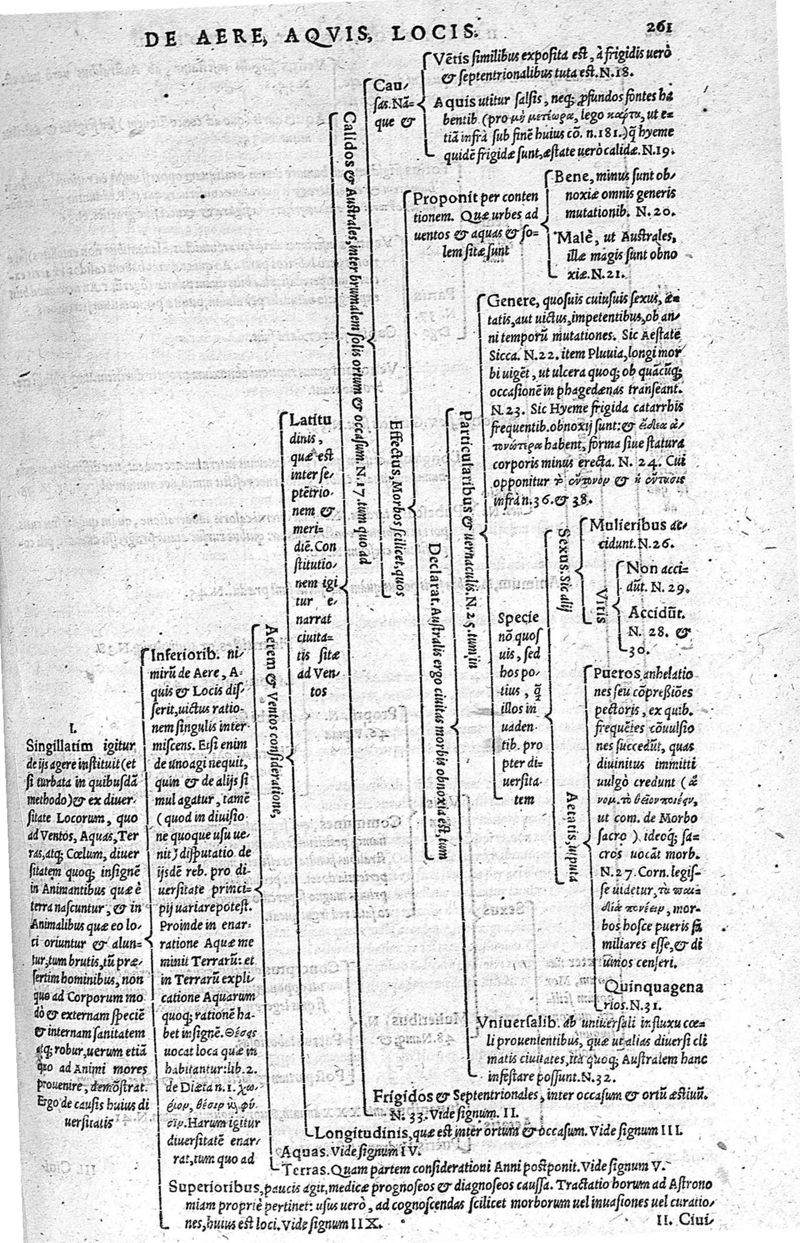 DE AERE, AQVIS, LOCIS. 261
I.
Singillatim igitur
de ijs agere instituit (et
si turbata in quibusdā
methodo) & ex diuer
sitate Locorum, quo
ad Ventos, Aquas, Ter
ras, atq; Cœlum, diuer
sitatem quoq; insignē
in Animantibus quæ è
terra nascuntur, & in
Animalibus quæ eo lo
ci oriuntur & alun-
tur, tum brutis, tū præ-
sertim hominibus, non
quo ad Corporum mo
dò & externam speciē
& internam sanitatem
atq; robur, uerum etiā
quo ad Animi mores
prouenire, demōstrat.
Ergo de causis huius di
uersitatis
Inferiorib. ni-
mirū de Aere, A-
quis & Locis dis-
serit, uictus ratio-
nem singulis inter
miscens. Etsi enim
de uno agi nequit,
quin & de alijs si
mul agatur, tamē
(quod in diuisio
ne quoque usu ue-
nit) disputatio de
ijsdē reb. pro di-
uersitate princi-
pij uariare potest.
Proinde in enar-
ratione Aquæ me
minit Terrarū: et
in Terrarū expli
catione Aquarum
quoq; rationē ha-
bet insignē. Θέσας
uocat loca quæ in
habitantur: lib. 2.
de Diæta n. 1. χω-
ρίον, θέσιν κỳ φύ-
σιν. Harum igitur
diuersitatē enar-
rat, tum quo ad
Aerem & Ventos consideratione,
Latitu
dinis,
quæ est
inter se-
ptētrio-
nem &
meri-
diē. Con
stitutio-
nem igi
tur e-
narrat
ciuita-
tis sitæ
ad Ven-
tos
Calidos & Australes, inter brumalem solis ortum & occasum. N. 17. tum quo ad
Cau-
sas. Nā-
que &
Vētis similibus exposita est, à frigidis uerò
& septentrionalibus tuta est. N. 18.
Aquis utitur salsis, neq; profundos fontes ha
bentib. (pro μὴ μετέωρα, lego κάρτα, ut e-
tiā infrà sub finē huius cō. n. 181.) q̄ hyeme
quidē frigidæ sunt, æstate uerò calidæ. N. 19.
Effectus, Morbos scilicet, quos
Proponit per conten
tionem. Quæ urbes ad
uentos & aquas & so-
lem sitæ sunt
Bene, minus sunt ob-
noxiæ omnis generis
mutationib. N. 20.
Malè, ut Australes,
illæ magis sunt obno
xiæ. N. 21.
Declarat. Australis ergo ciuitas morbis obnoxia est, tum
Particularibus & uernaculis. N. 25. tum in
Genere, quosuis cuiusuis sexus, æ-
tatis, aut uictus, impetentibus, ob an-
ni temporū mutationes. Sic Aestate
Sicca. N. 22. item Pluuia, longi mor
bi uigēt, ut ulcera quoq; ob quācūq;
occasionē in phagedænas transeant.
N. 23. Sic Hyeme frigida catarrhis
frequentib. obnoxij sunt: & εἴδεα ἀ-
τονώτερα habent, forma siue statura
corporis minus erecta. N. 24. Cui
opponitur τὸ εὔτονον & ἡ εὔτασις
infrà n. 36. & 38.
Specie
nō quos
uis, sed
hos po-
tius, q̄
illos in
uaden-
tib. pro
pter di-
uersita-
tem
Sexus. Sic alij
Mulieribus ac-
cidunt. N. 26.
Viris
Non acci-
dūt. N. 29.
Accidūt.
N. 28. &
30.
Aetatis, ut puta
Pueros anhelatio
nes seu cōpreßiōes
pectoris, ex quib.
frequētes cōuulsio
nes succedūt, quas
diuinitus immitti
uulgò credunt (ἃ
νομ. τὸ θεῖον ποιέειν,
ut com. de Morbo
sacro) ideoq; sa-
cros uocāt morb.
N. 27. Corn. legis-
se uidetur, τὰ παι-
δία πονέειν, mor-
bos hosce pueris fa
miliares esse, & di
uinos censeri.
Quinquagena
rios. N. 31.
Vniuersalib. ab uniuersali influxu cœ-
li prouenientibus, quæ ut alias diuersi cli
matis ciuitates, ita quoq; Australem hanc
infestare possunt. N. 32.
Frigidos & Septentrionales, inter occasum & ortū æstiuū.
N. 33. Vide signum. II.
Longitudinis, quæ est inter ortum & occasum. Vide signum III.
Aquas. Vide signum IV.
Terras. Quam partem considerationi Anni postponit. Vide signum V.
Superioribus, paucis agit, medicæ prognoseos & diagnoseos caussa. Tractatio horum ad Astrono
miam propriè pertinet: usus uerò, ad cognoscendas scilicet morborum uel inuasiones uel curatio-
nes, huius est loci. Vide signum IIX.
II. Ciui-